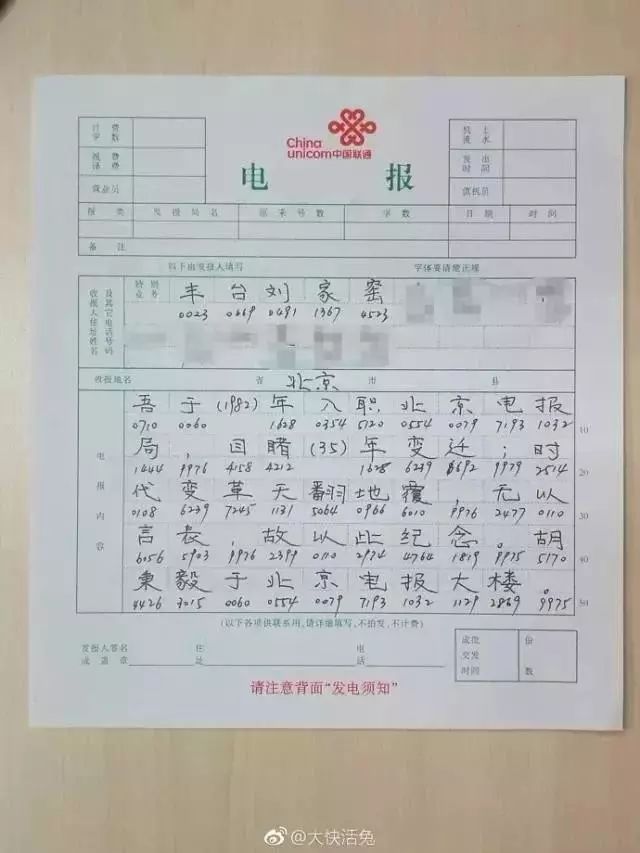 China
unicom中国联通
电 报
计费字数
报费译费
营业员
机上流水
发出时间
值机员
报类 发报局名 原来号数 字数 日期 时间
备注
以下由发报人填写 字体要清楚正规
收报人住址姓名及其官电话号码
特别业务 丰台刘家窑
0023 0669 0491 1367 4523
收报地名 省 北京 市 县
电报内容
吾于(1982)年入职北京电报
0710 0060 1628 0354 5120 0554 0079 7193 1032 10
局,目睹(35)年变迁;时
1444 9976 4158 4212 1628 6239 6692 9979 2514 20
代变革天翻地覆,无以
0108 6239 7245 1131 5064 0966 6010 9976 2477 0110 30
言表,故以此纪念。胡
6056 5903 9976 2399 0110 2974 4764 1819 9975 5170 40
東毅于北京电报大楼。
4426 3015 0060 0554 0079 7193 1032 1129 2869 9975 50
(以下各项供联系用,请详细填写,不拍发,不计费)
发报人签名或盖章 住址 电话
成批交发时间 份数
请注意背面“发电须知”
@大快活兔